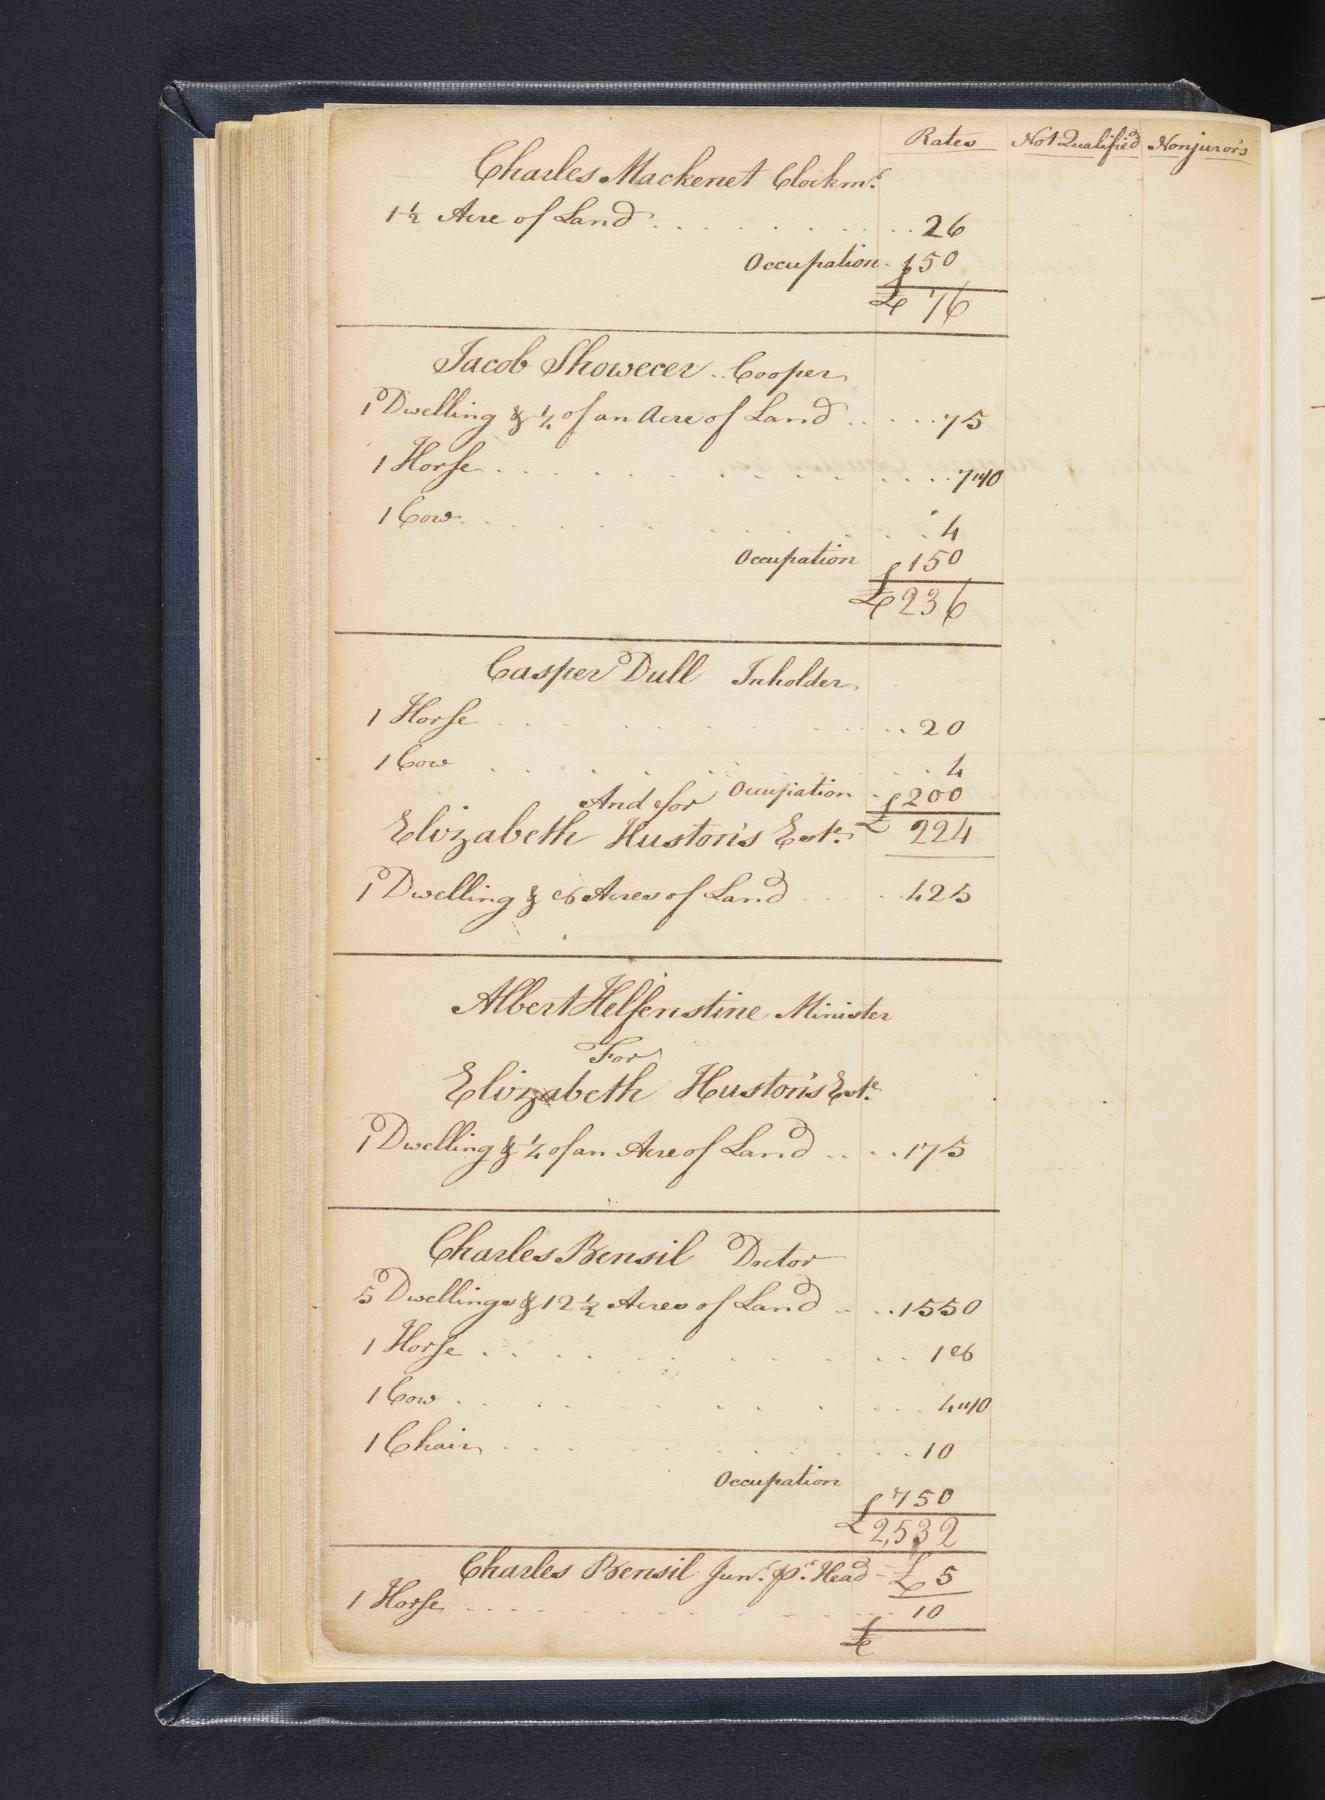 Rates Not Qualified Nonjurors
Charles Mackenet Clockmr.
1½ Acre of Land . . . . . . . . 26
Occupation . 50
£ 76
Jacob Showecer . . Cooper
1 Dwelling & ¼ of an Acre of Land . . . . . 75
1 Horse . . . . . . . . . . . . 7"10
1 Cow . . . . . . . . . 4
Occupation 150
£ 236
Casper Dull Inholder
1 Horse . . . . . . . . . . 20
1 Cow . . . . . . . . 4
And for Occupation . 200
Elizabeth Huston's Este. £ 224
1 Dwelling & 6 Acres of Land . . . . . 425
Albert Helfenstine Minister
For
Elizabeth Huston's Este.
1 Dwelling & ¼ of an Acre of Land . . . . 175
Charles Bensil Doctor
5 Dwellings & 12½ Acres of Land . . . . 1550
1 Horse . . . . . . . . . . 16
1 Cow . . . . . . . . . . 4"10
1 Chair . . . . . . . . . 10
Occupation
750
£ 2,532
Charles Bensil Junr. pr. Head - £ 5
1 Horse . . . . . . . . . . 10
£